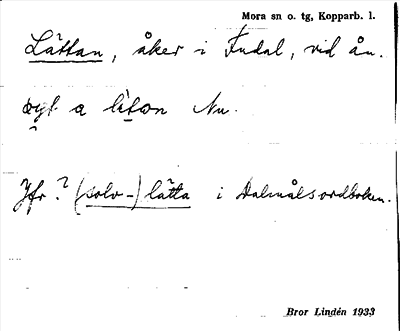 Mora sn o. tg, Kopparb. l.
Lättan, åker i Fudal, vid ån.
a Nu.
Jfr.? (solv-) lätta i Dalmålsordboken.
Bror Lindén 1933